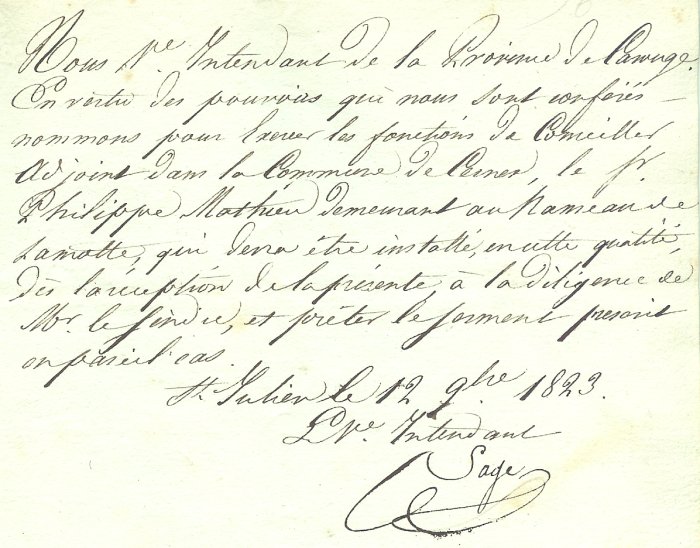 Nous V.e Intendant de la Province de Carouge.
En vertu des pouvoirs qui nous sont conférés –
nommons pour Exercer les fonctions de Conseiller
Adjoint dans la Commune de Cernex, le Sr.
Philippe Mathieu demeurant au hameau de
Lamotte, qui devra être installé, en cette qualité,
dès la réception de la présente, à la diligence de
Mr. le Sindic, et prêter le serment prescrit
en pareil cas.
St. Julien le 12 9bre 1823.
Le V.e Intendant
Sage